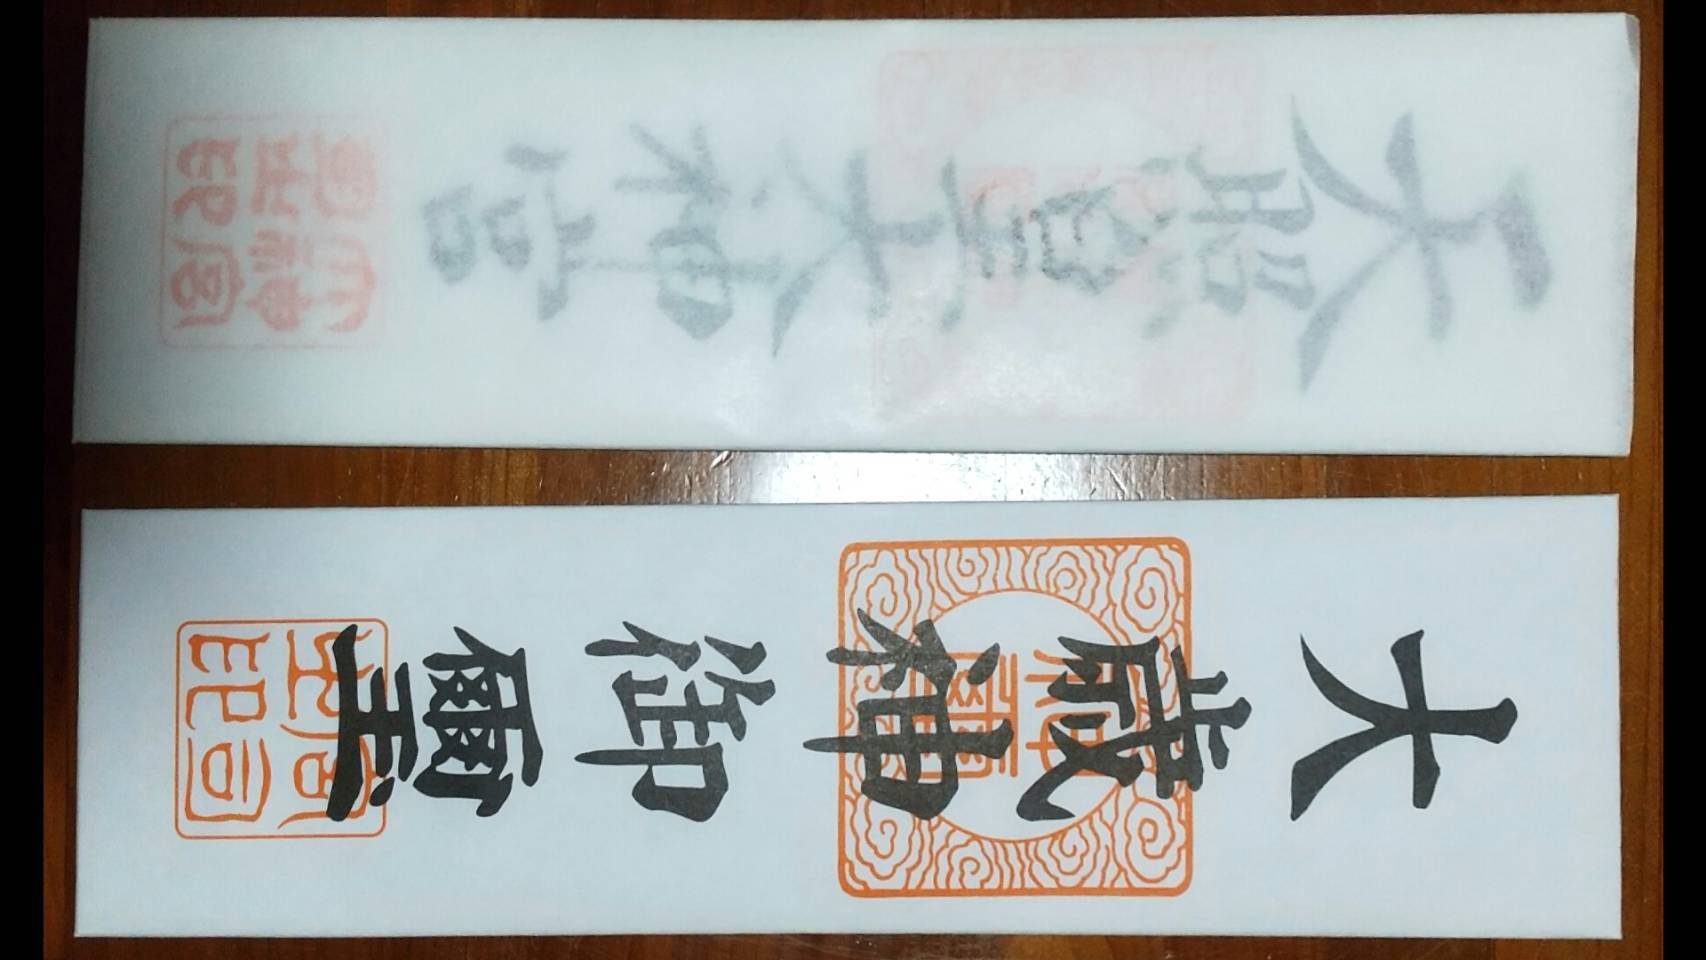 天照皇大神宮
大歳神御璽